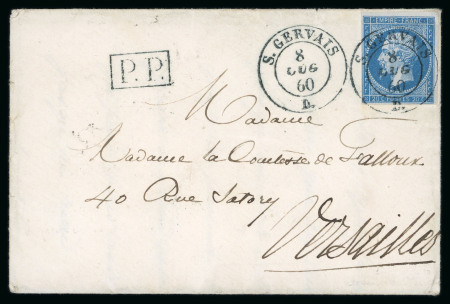 S. GERVAIS
8
LUG
60
D.
S. GERVAIS
8
LUG
60
D.
EMPIRE FRANC
P.P.
Madame
Madame la Comtesse de Falloux
40 Rue Satory
Versailles